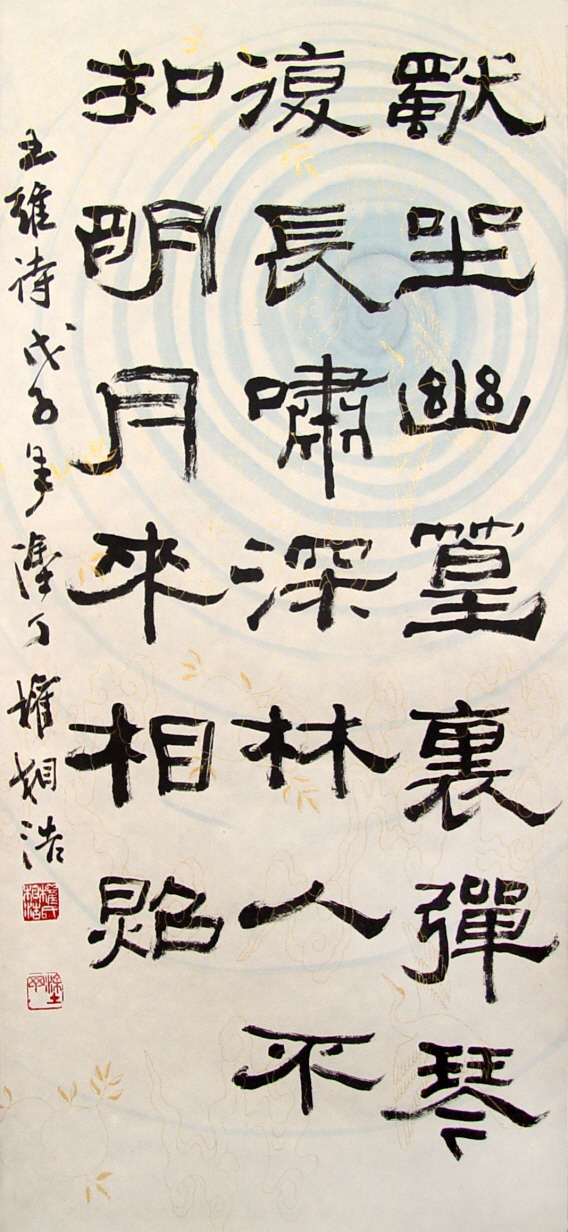 獨坐幽篁裏彈琴
復長嘯深林人不
知明月來相照
王維詩戊子年塗丁權相浩
權氏相浩